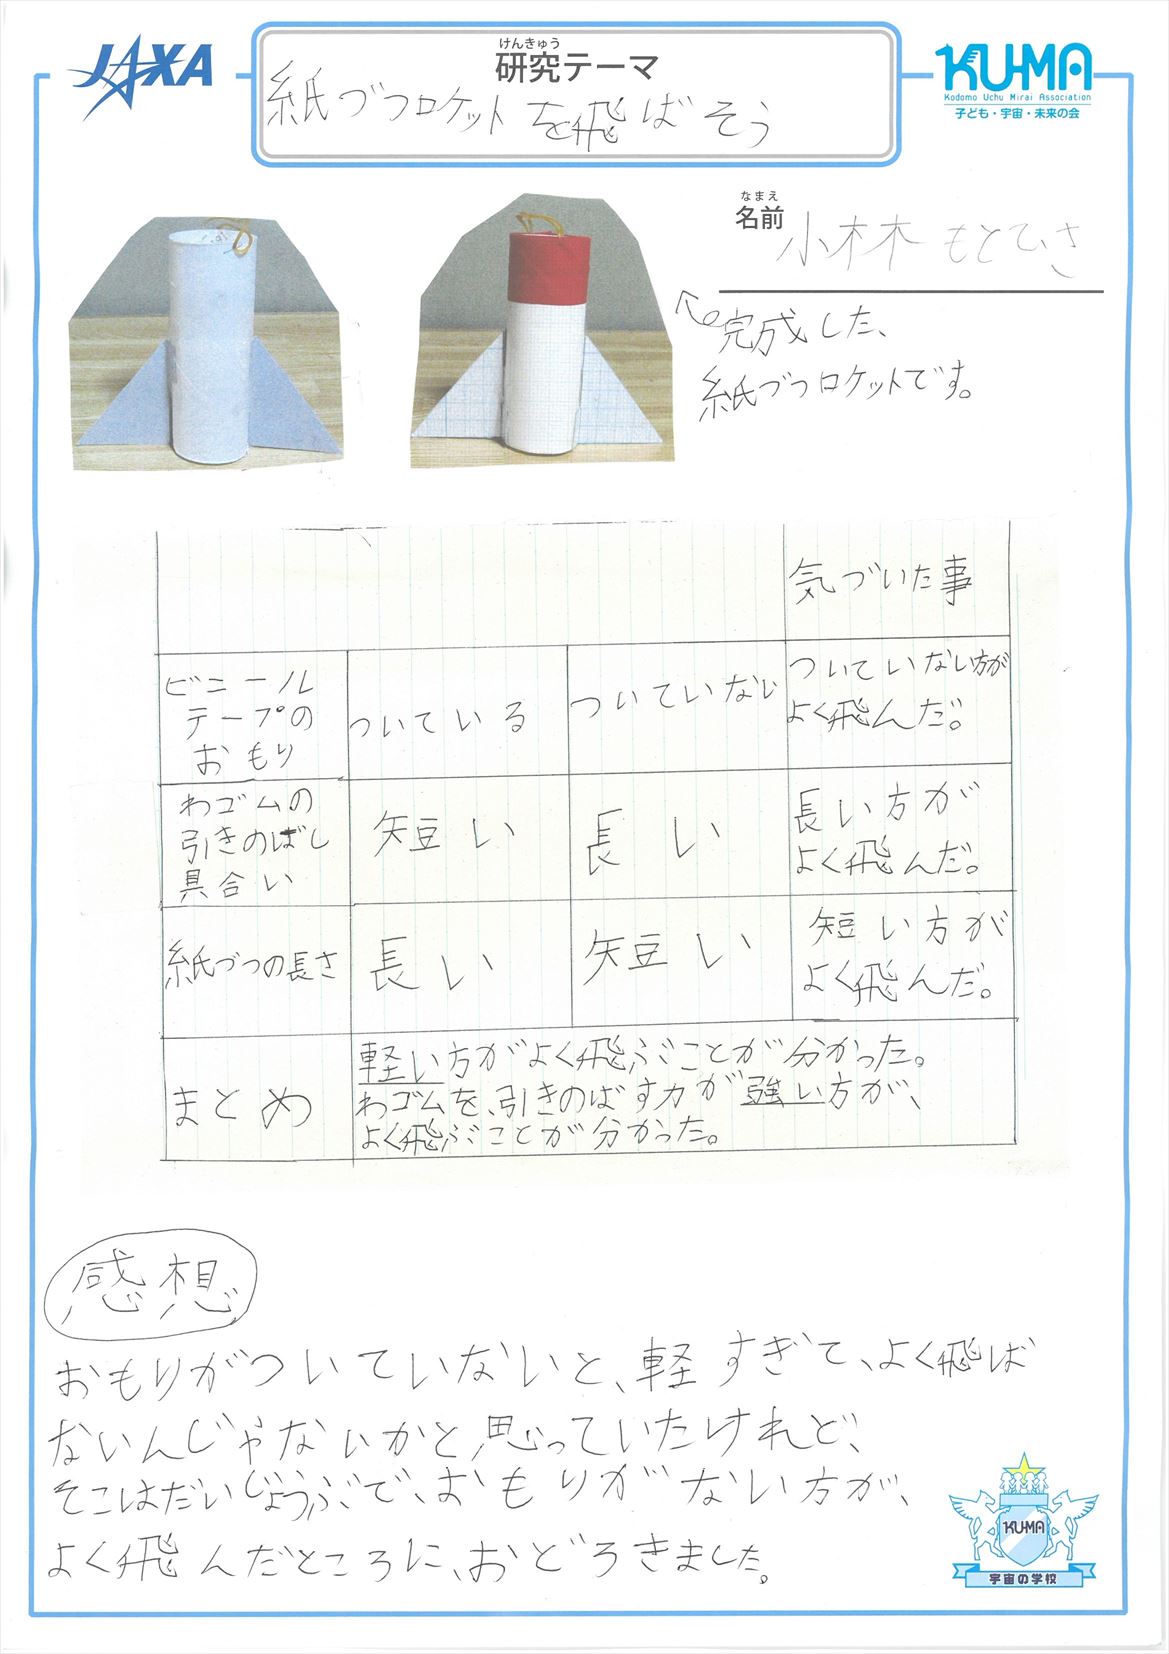 JAXA
けんきゅう
研究テーマ
紙づつロケットを飛ばそう
KU-MA
Kodomo Uchu Mirai Association
子ども・宇宙・未来の会
なまえ
名前
小林 もとひさ
完成した、
紙づつロケットです。
気づいた事
ビニール
テープの
おもり
ついている
ついていない
ついていない方が
よく飛んだ。
わゴムの
引きのばし
具合い
短い
長い
長い方が
よく飛んだ。
紙づつの長さ
長い
短い
短い方が
よく飛んだ。
まとめ
軽い方がよく飛ぶことが分かった。
わゴムを、引きのばす力が強い方が、
よく飛ぶことが分かった。
感想
おもりがついていないと、軽すぎて、よく飛ば
ないんじゃないかと思っていたけれど、
そこはだいじょうぶで、おもりがない方が、
よく飛んだところに、おどろきました。
KU-MA
宇宙の学校